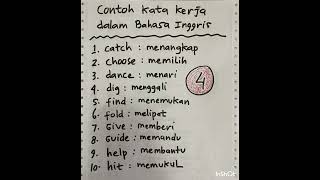 Contoh kata kerja
dalam Bahasa Inggris
1. catch : menangkap
2. choose : memilih
3. dance : menari
4. dig : menggali
5. find : menemukan
6. fold : melipat
7. Give : memberi
8. Guide : memandu
9. help : membantu
10. hit : memukul
4
InShot